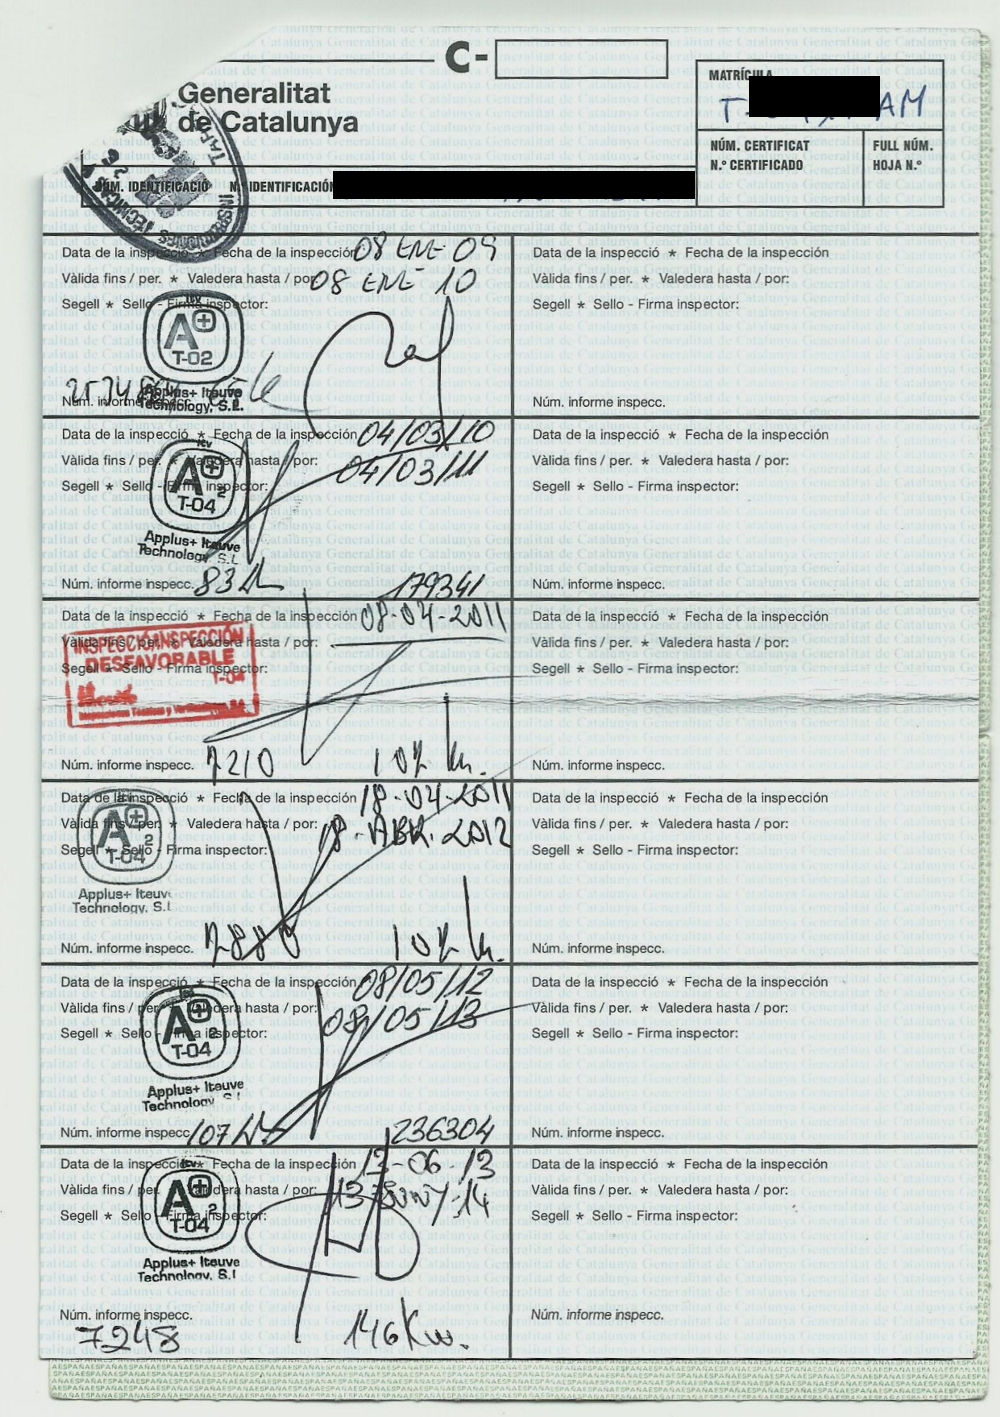 C-
Generalitat
de Catalunya
MATRÍCULA
T- AM
NÚM. CERTIFICAT
N.º CERTIFICADO
FULL NÚM.
HOJA N.º
NÚM. IDENTIFICACIÓ N. IDENTIFICACIÓN
INSPECCIONES TÉCNICAS
Data de la inspecció * Fecha de la inspección 08 ENE 09
Vàlida fins / per. * Valedera hasta / por: 08 ENE 10
Segell * Sello - Firma inspector:
itv
A+
T-02
Applus+ Iteuve
Technology, S.L.
Núm. informe inspecc.
Data de la inspecció * Fecha de la inspección 04/03/10
Vàlida fins / per. * Valedera hasta / por: 04/03/11
Segell * Sello - Firma inspector:
itv
A+ 2
T-04
Applus+ Iteuve
Technology S.L
Núm. informe inspecc. 179341
Data de la inspecció * Fecha de la inspección 08-04-2011
Vàlida fins / per. * Valedera hasta / por:
Segell * Sello - Firma inspector:
INSPECCIÓ/INSPECCIÓN
DESFAVORABLE
T-04
Núm. informe inspecc. 7210 107 k.
Data de la inspecció * Fecha de la inspección 18-04-2011
Vàlida fins / per. * Valedera hasta / por: 18-ABR-2012
Segell * Sello - Firma inspector:
A+ 2
T-04
Applus+ Iteuve
Technology, S.L
Núm. informe inspecc. 107 k.
Data de la inspecció * Fecha de la inspección 08/05/12
Vàlida fins / per. * Valedera hasta / por: 08/05/13
Segell * Sello - Firma inspector:
itv
A+ 2
T-04
Applus+ Iteuve
Technology S.L
Núm. informe inspecc. 236304
Data de la inspecció * Fecha de la inspección 13-06-13
Vàlida fins / per. * Valedera hasta / por: 13-JUNY-14
Segell * Sello - Firma inspector:
itv
A+ 2
T-04
Applus+ Iteuve
Technology, S.L
Núm. informe inspecc.
7248 146 Km.
Data de la inspecció * Fecha de la inspección
Vàlida fins / per. * Valedera hasta / por:
Segell * Sello - Firma inspector:
Núm. informe inspecc.
Data de la inspecció * Fecha de la inspección
Vàlida fins / per. * Valedera hasta / por:
Segell * Sello - Firma inspector:
Núm. informe inspecc.
Data de la inspecció * Fecha de la inspección
Vàlida fins / per. * Valedera hasta / por:
Segell * Sello - Firma inspector:
Núm. informe inspecc.
Data de la inspecció * Fecha de la inspección
Vàlida fins / per. * Valedera hasta / por:
Segell * Sello - Firma inspector:
Núm. informe inspecc.
Data de la inspecció * Fecha de la inspección
Vàlida fins / per. * Valedera hasta / por:
Segell * Sello - Firma inspector:
Núm. informe inspecc.
Data de la inspecció * Fecha de la inspección
Vàlida fins / per. * Valedera hasta / por:
Segell * Sello - Firma inspector:
Núm. informe inspecc.